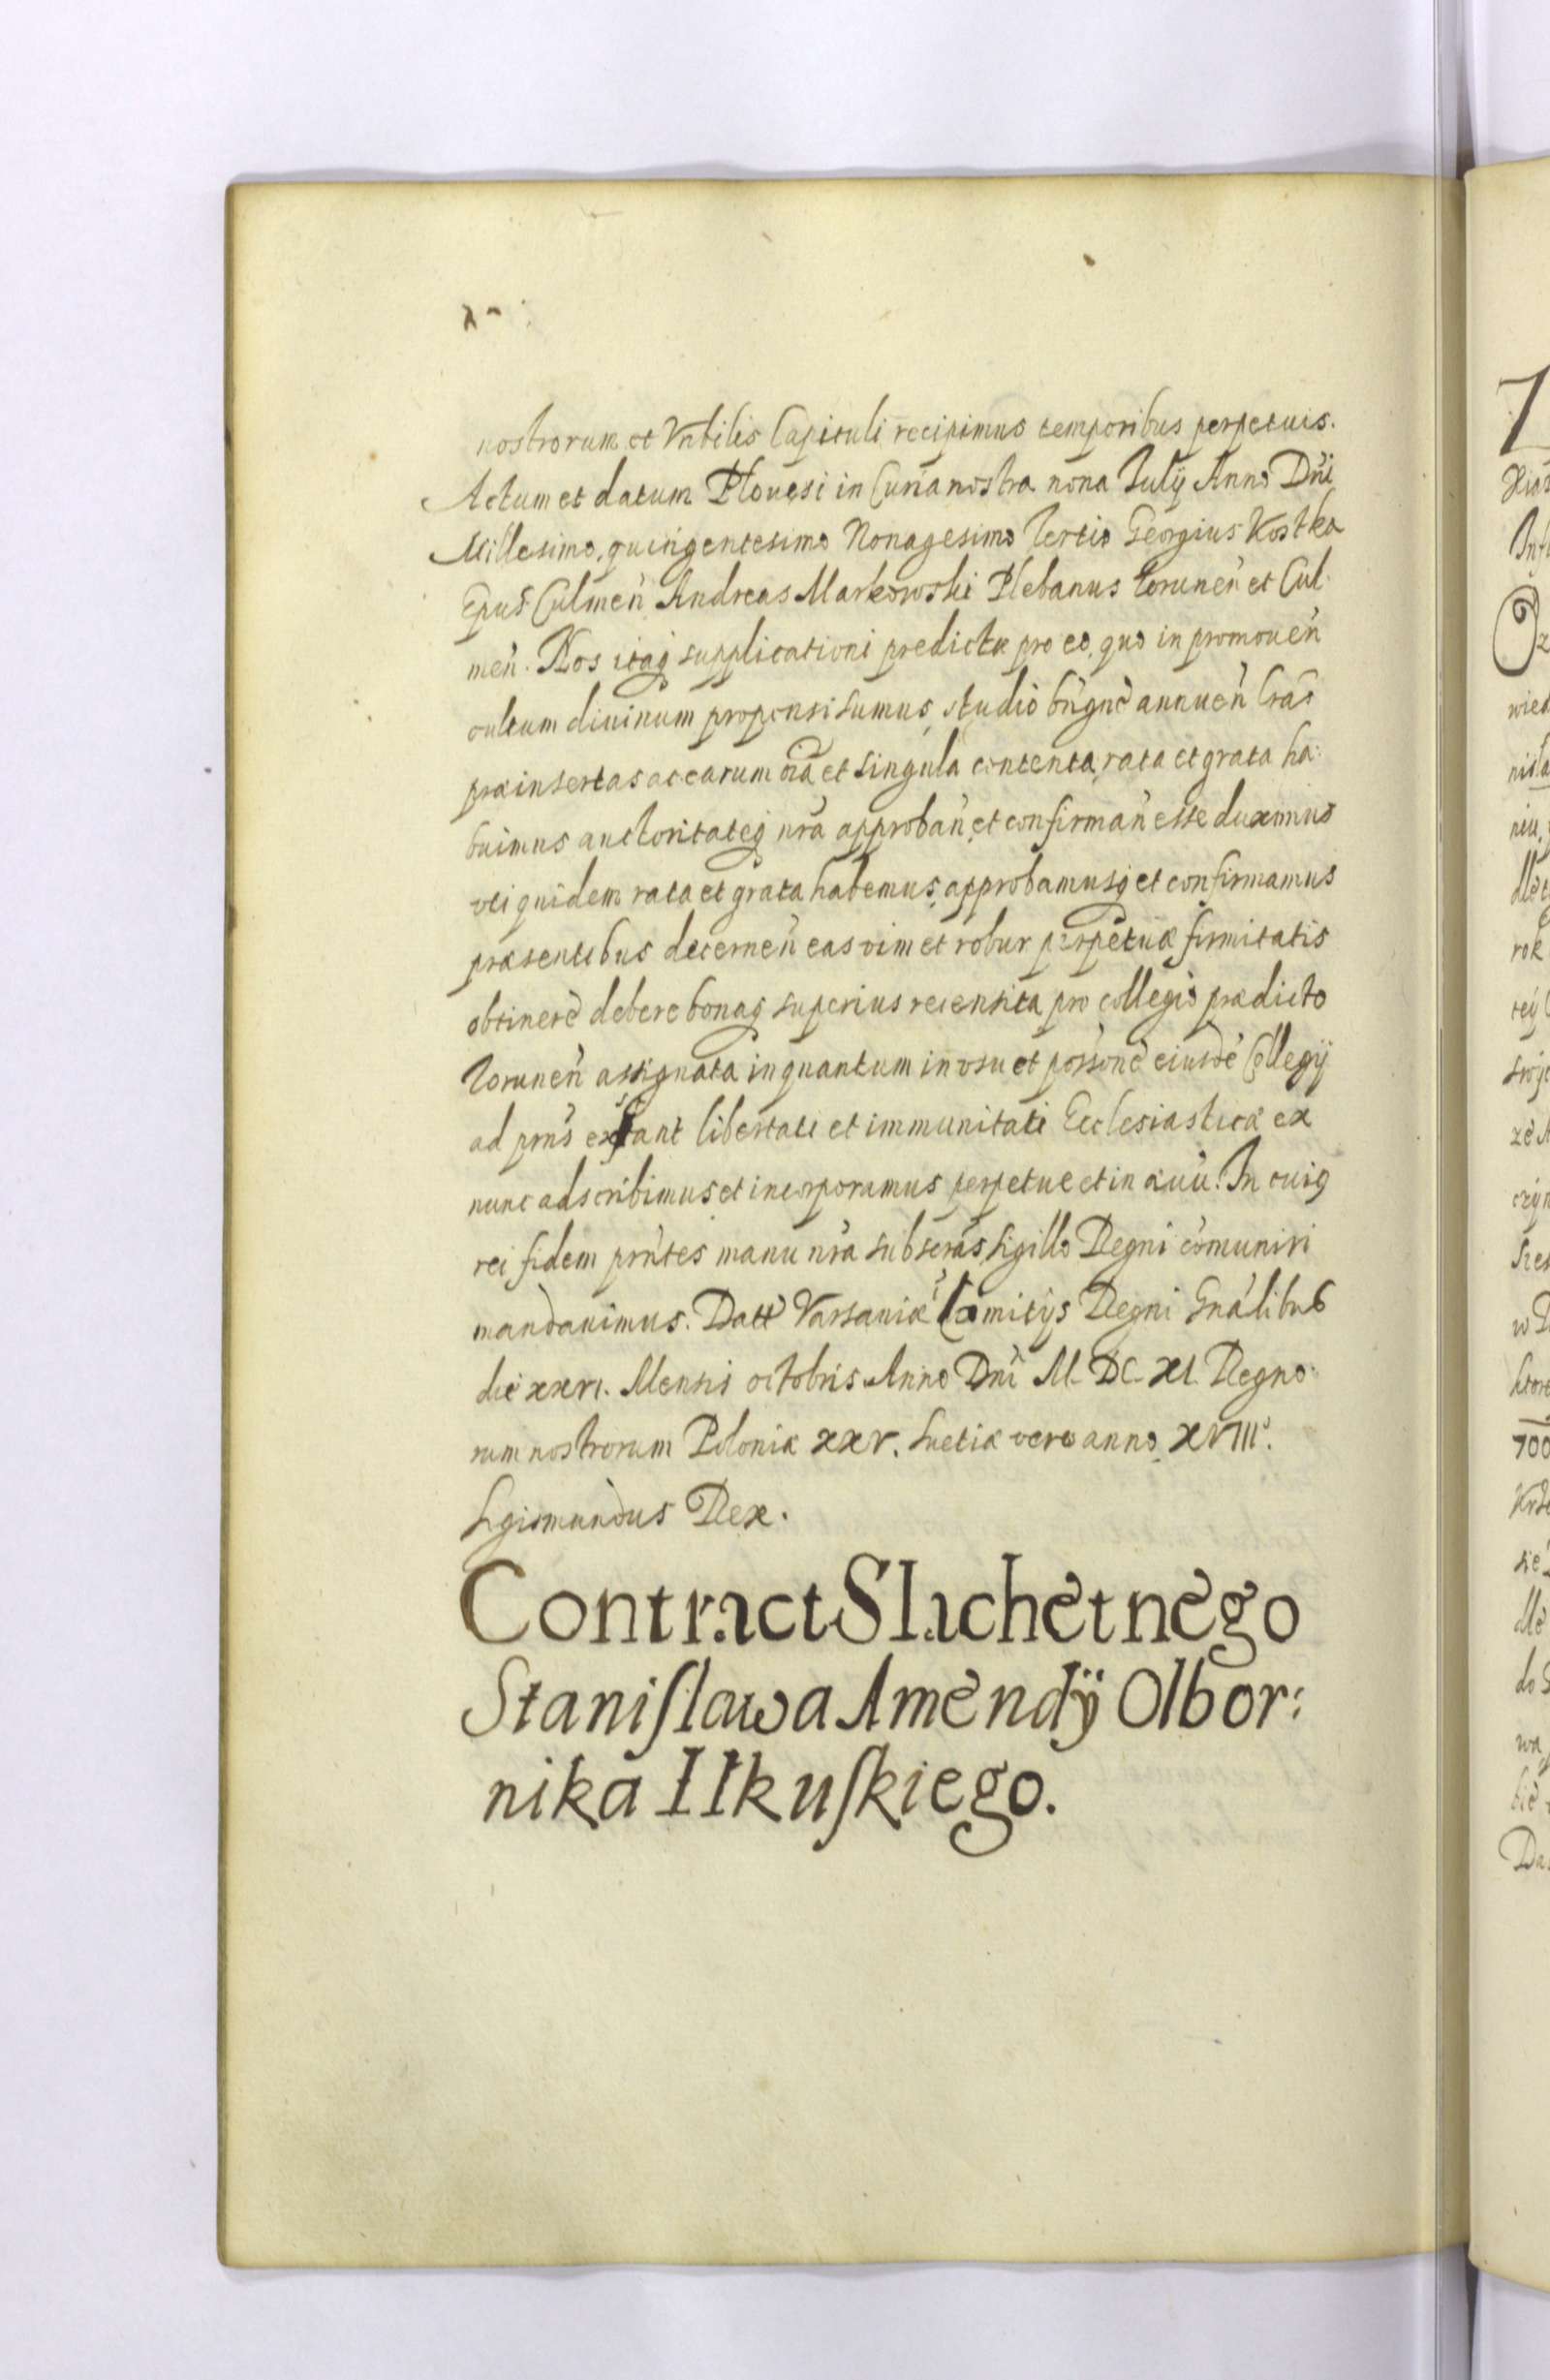 nostrorum et Vnbilis Capituli recipimus temporibus perpetuis.
Actum et datum Plouesi in Curia nostra nona Iulij Anno Dni
Millesimo, quingentesimo Nonagesimo Tertio Georgius Kostka
Epus Culmeñ Andreas Markowski Plebanus Toruneñ et Cul
meñ. Nos itaq supplicationi predictæ pro eo, quo in promoueñ
cultum diuinum propensi sumus, studio bñgne annueñ lras
præinsertas ac earum oia et singula contenta, rata et grata ha:
buimus auctoritateq nra approbañ, et confirmañ esse duximus
vti quidem rata et grata habemus, approbamusq et confirmamus
præsentibus decerneñ eas vim et robur perpetuæ firmitatis
obtinere debere bonaq superius recensita pro collegio prædicto
Toruneñ assignata in quantum in vsu et possone eiusde Collegij
ad prns exstant libertati et immunitati Ecclesiasticæ ex
nunc adscribimus et incorporamus perpetue et in æuu. In cuiq
rei fidem prntes manu nra subscras, sigillo Regni comuniri
mandauimus. Datt Varsauiæ Comitijs Regni Gnalibus
die xxvi. Mensis octobris Anno Dni M. DC. XI. Regno:
rum nostrorum Poloniæ XXV. Suetiæ vero anno XVIII.
Sigismundus Rex.
Contract Slachetnego
Stanisława Amendÿ Olbor:
nika Ilkuskiego.